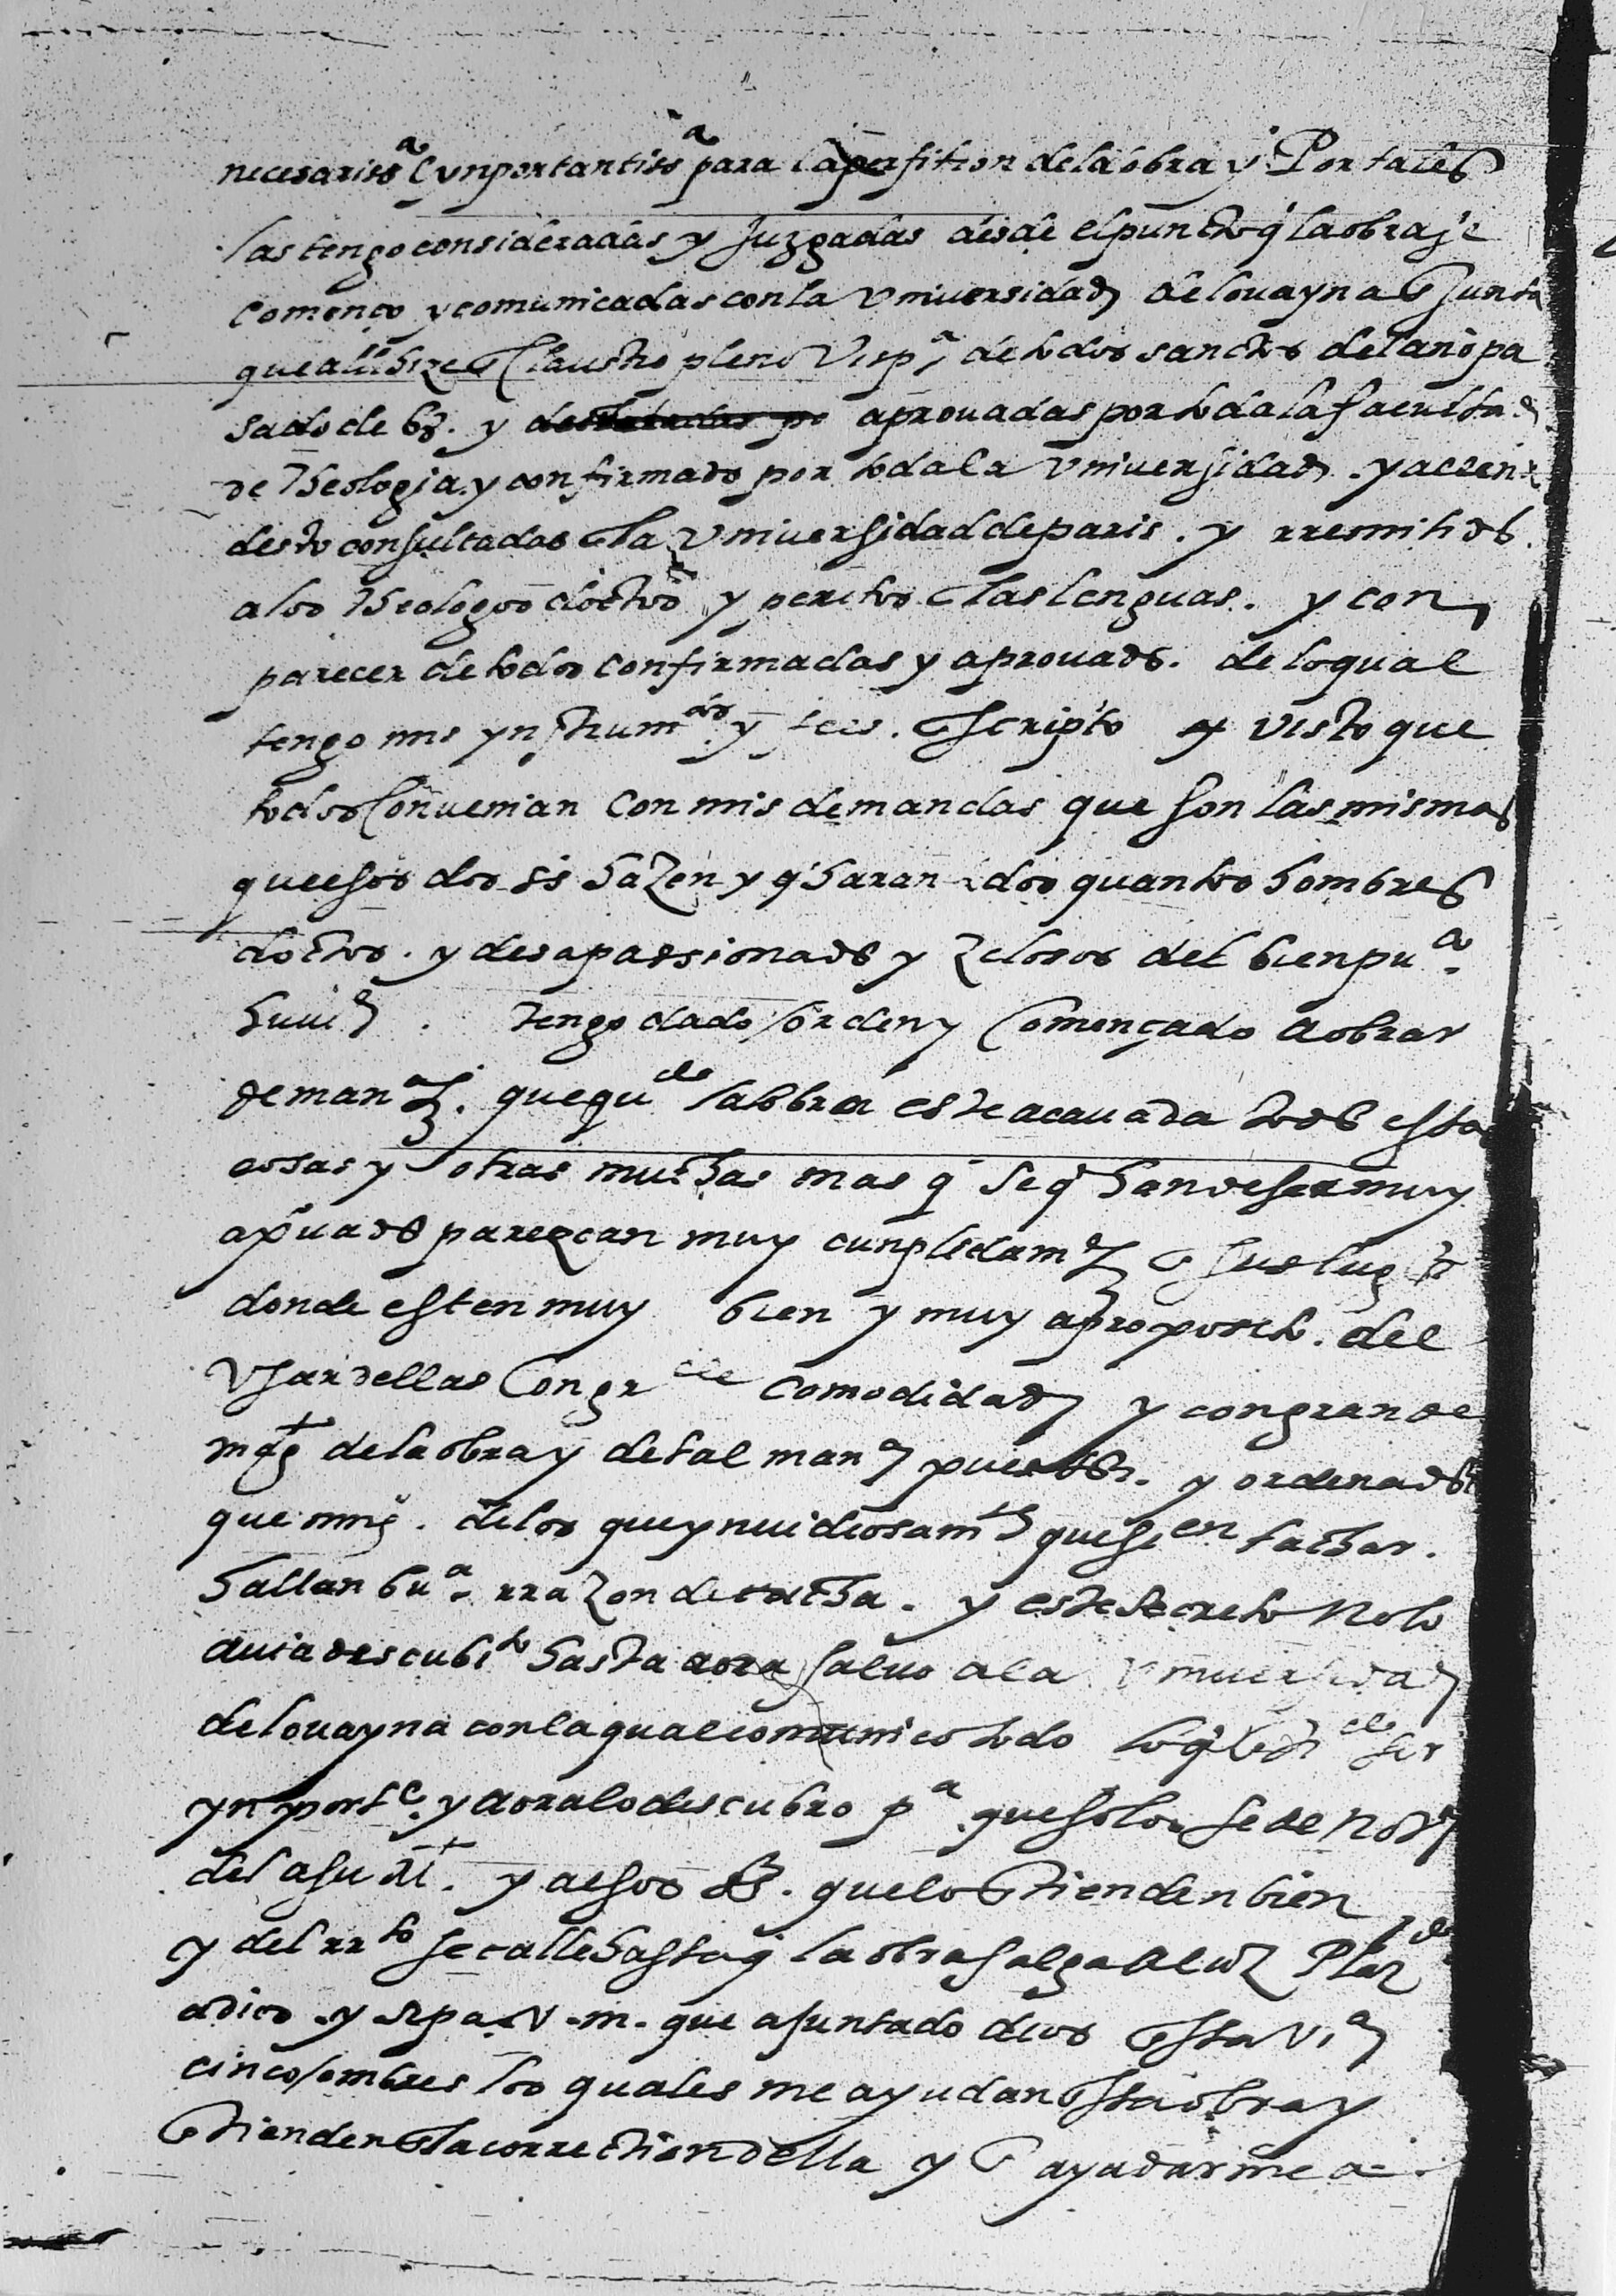 necesarissᵃ E ynportantissᵃ para la perfition de la obra y Por tales
las tengo consideradas y Juzgadas desde el puncto q̃ la obra se
començo y comunicadas con la Vniversidad de lovayna E Junta
que alli hize E Claustro pleno Vispᵃ de todos sanctos del año pa
sado de 68. y aprouadas por toda la facultad
de Theologia. y confirmado por toda la Vniversidad. y allen
desto consultadas E la Vniversidad de paris. y rremitidos
a los Theologos doctos y peritos E las lenguas. y con
parecer de todos confirmadas y aprouados. de lo qual
tengo mis ynstrumᵗᵒˢ y fees. Escripto y visto que
todos Convenian Con mis demandas que son las mismas
que esos dos ss hazen y q̃ haran todos quantos hombres
doctos. y desapassionados y zelosos del bien puᶜᵒ
huuiᵉ. Tengo dado orden y Començado a obrar
de manᵃ. que quᵈᵒ la obra este acauada todos estas
cosas y otras muchas mas q̃ se q̃ han de ser muy
aprouados parezcan muy cunplidamᵉ E sus lugʳᵉˢ
donde esten muy bien y muy a proposito. del
Vsar dellas Con grᵈᵉ Comodidad y con grande
magᵗ de la obra y de tal manᵃ puestos. y ordenados
que ning̃. de los que ynuidiosamᵗᵉ quisien tachar.
hallan buᵃ. rrazon de tacha. y este secreto No lo
auia descubiᵗᵒ hasta aora saluo a la Vniversidad
de lovayna con la qual comunico todo lo q̃ ser
ynportᵉ. y aora lo descubro pᵃ. que solo se de notᵃ
del a su Mᵗ. y a esos SS. que lo Etienden bien
y del rrᵗᵒ se calle hasta q̃ la obra salga a luz Plazᵈᵒ
a dios. y sepa. V. m. que a Juntado dios E sta Viᵃ
cinco ombres los quales me ayudan E sta obra y
Etienden E la correction della y E ayudarme a